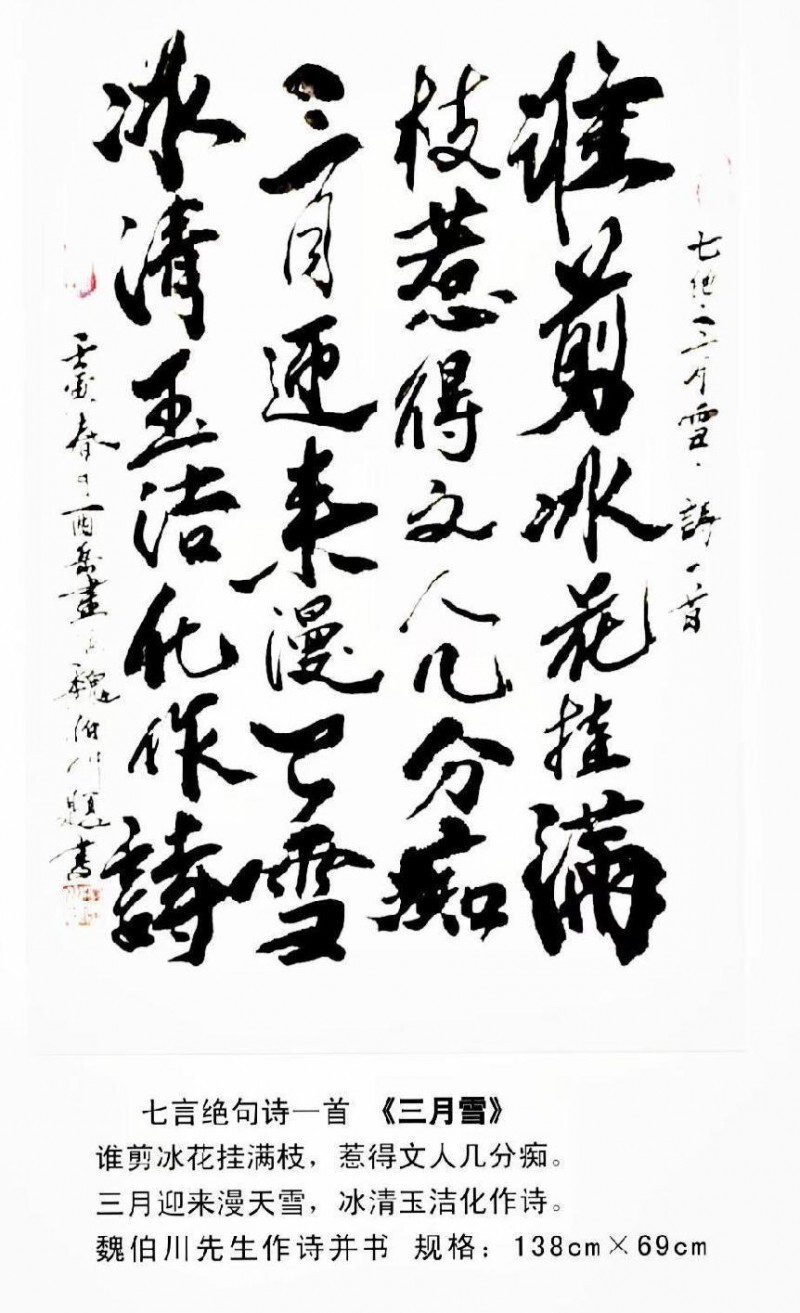 七绝·三月雪·诗一首
谁剪冰花挂满
枝惹得文人几分痴
三月迎来漫天雪
冰清玉洁化作詩
壬寅春月酉岳畫魏伯川題書
七言绝句诗一首 《三月雪》
谁剪冰花挂满枝，惹得文人几分痴。
三月迎来漫天雪，冰清玉洁化作诗。
魏伯川先生作诗并书 规格：138cm×69cm